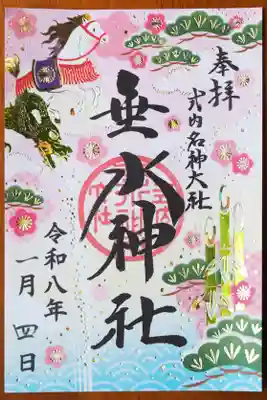 奉拝
式内名神大社
垂水神社
令和八年
一月四日